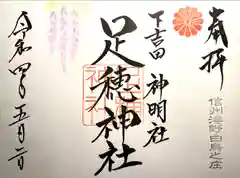 奉拝
信州海野白鳥之庄
下吉田 神明社
足穂神社
令和四年五月二日